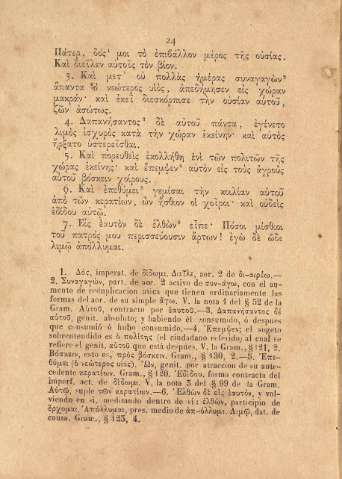 24
Πάτερ, δός¹ μοι τὸ ἐπιβάλλον μέρος τῆς οὐσίας.
Καὶ διεῖλεν αὐτοῖς τὸν βίον.
3. Καὶ μετ᾽ οὐ πολλὰς ἡμέρας συναγαγὼν²
ἅπαντα ὁ νεώτερος υἱός, ἀπεδήμησεν εἰς χώραν
μακράν· καὶ ἐκεῖ διεσκόρπισε τὴν οὐσίαν αὐτοῦ,
ζῶν ἀσώτως.
4. Δαπανήσαντος³ δὲ αὐτοῦ πάντα, ἐγένετο
λιμὸς ἰσχυρὸς κατὰ τὴν χώραν ἐκείνην· καὶ αὐτὸς
ἤρξατο ὑστερεῖσθαι.
5. Καὶ πορευθεὶς ἐκολλήθη ἑνὶ τῶν πολιτῶν τῆς
χώρας ἐκείνης· καὶ ἔπεμψεν⁴ αὐτὸν εἰς τοὺς ἀγροὺς
αὐτοῦ βόσκειν χοίρους.
6. Καὶ ἐπεθύμει⁵ γεμίσαι τὴν κοιλίαν αὐτοῦ
ἀπὸ τῶν κερατίων, ὧν ἤσθιον οἱ χοῖροι· καὶ οὐδεὶς
ἐδίδου αὐτῷ.
7. Εἰς ἑαυτὸν δὲ ἐλθὼν⁶ εἶπε· Πόσοι μίσθιοι
τοῦ πατρός μου περισσεύουσιν ἄρτων! ἐγὼ δὲ ὧδε
λιμῷ ἀπόλλυμαι.
1. Δός, imperat. de δίδωμι. Διεῖλε, aor. 2 de δι-αιρέω.—
2. Συναγαγών, part. de aor. 2 activo de συν-άγω, con el au-
mento de reduplicacion ática que tienen ordinariamente las
formas del aor. de su simple ἄγω. V. la nota 1 del § 52 de la
Gram. Αὑτοῦ, contracto por ἑαυτοῦ.—3. Δαπανήσαντος δὲ
αὐτοῦ, genit. absoluto; y habiendo él consumido, ó despues
que consumió ó hubo consumido.—4. Ἔπεμψε; el sugeto
sobrentendido es ὁ πολίτης (el ciudadano referido) al cual se
refiere el genit. αὐτοῦ que está despues. V. la Gram., § 121, 2.
Βόσκειν, esto es, πρὸς βόσκειν. Gram., § 130, 2.—5. Ἐπε-
θύμει (ὁ νεώτερος υἱός). Ὧν, genit. por atraccion de su ante-
cedente κερατίων. Gram., § 120. Ἐδίδου, forma contracta del
imperf. act. de δίδωμι. V. la nota 3 del § 99 de la Gram.
Αὐτῷ, suple τῶν κερατίων.—6. Ἐλθὼν δὲ εἰς ἑαυτόν, y vol-
viendo en sí, meditando dentro de sí: ἐλθών, participio de
ἔρχομαι. Ἀπόλλυμαι, pres. medio de ἀπ-όλλυμι. Λιμῷ, dat. de
causa. Gram., § 123, 4.